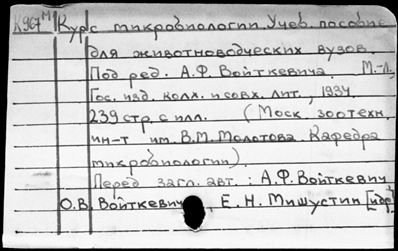 К967м Курс микробиологии. Учеб. пособие
для животноводческих вузов.
Под ред. А.Ф. Войткевича. М.-Л.,
Гос. изд. колх. и совх. лит., 1934.
239 стр. с илл. (Моск. зоотехн.
ин-т им. В.М. Молотова. Кафедра
микробиологии).
Перед загл. авт.: А.Ф. Войткевич
О.В. Войткевич, Е.Н. Мишустин [и др.]